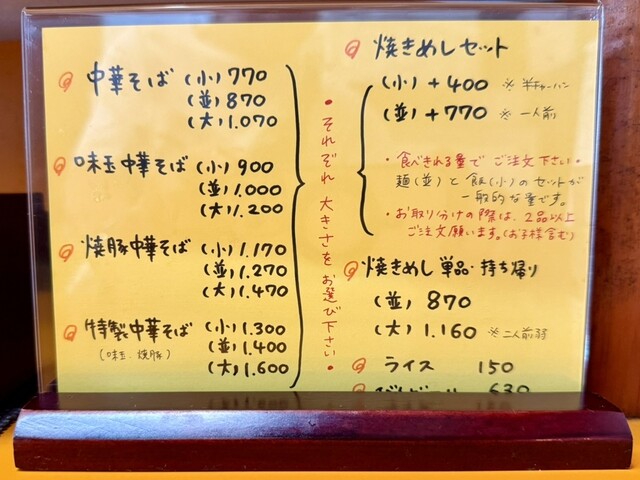 中華そば (小) 770
(並) 870
(大) 1.070
味玉中華そば (小) 900
(並) 1.000
(大) 1.200
焼豚中華そば (小) 1.170
(並) 1.270
(大) 1.470
特製中華そば (小) 1.300
(味玉・焼豚) (並) 1.400
(大) 1.600
・それぞれ大きさをお選び下さい・
焼きめしセット
(小) +400 ※半チャーハン
(並) +770 ※一人前
・食べきれる量でご注文下さい・
麺(並)と飯(小)のセットが
一般的な量です。
・お取り分けの際は、2品以上
ご注文願います。(お子様含む)
焼きめし単品・持ち帰り
(並) 870
(大) 1.160 ※二人前弱
ライス 150
630